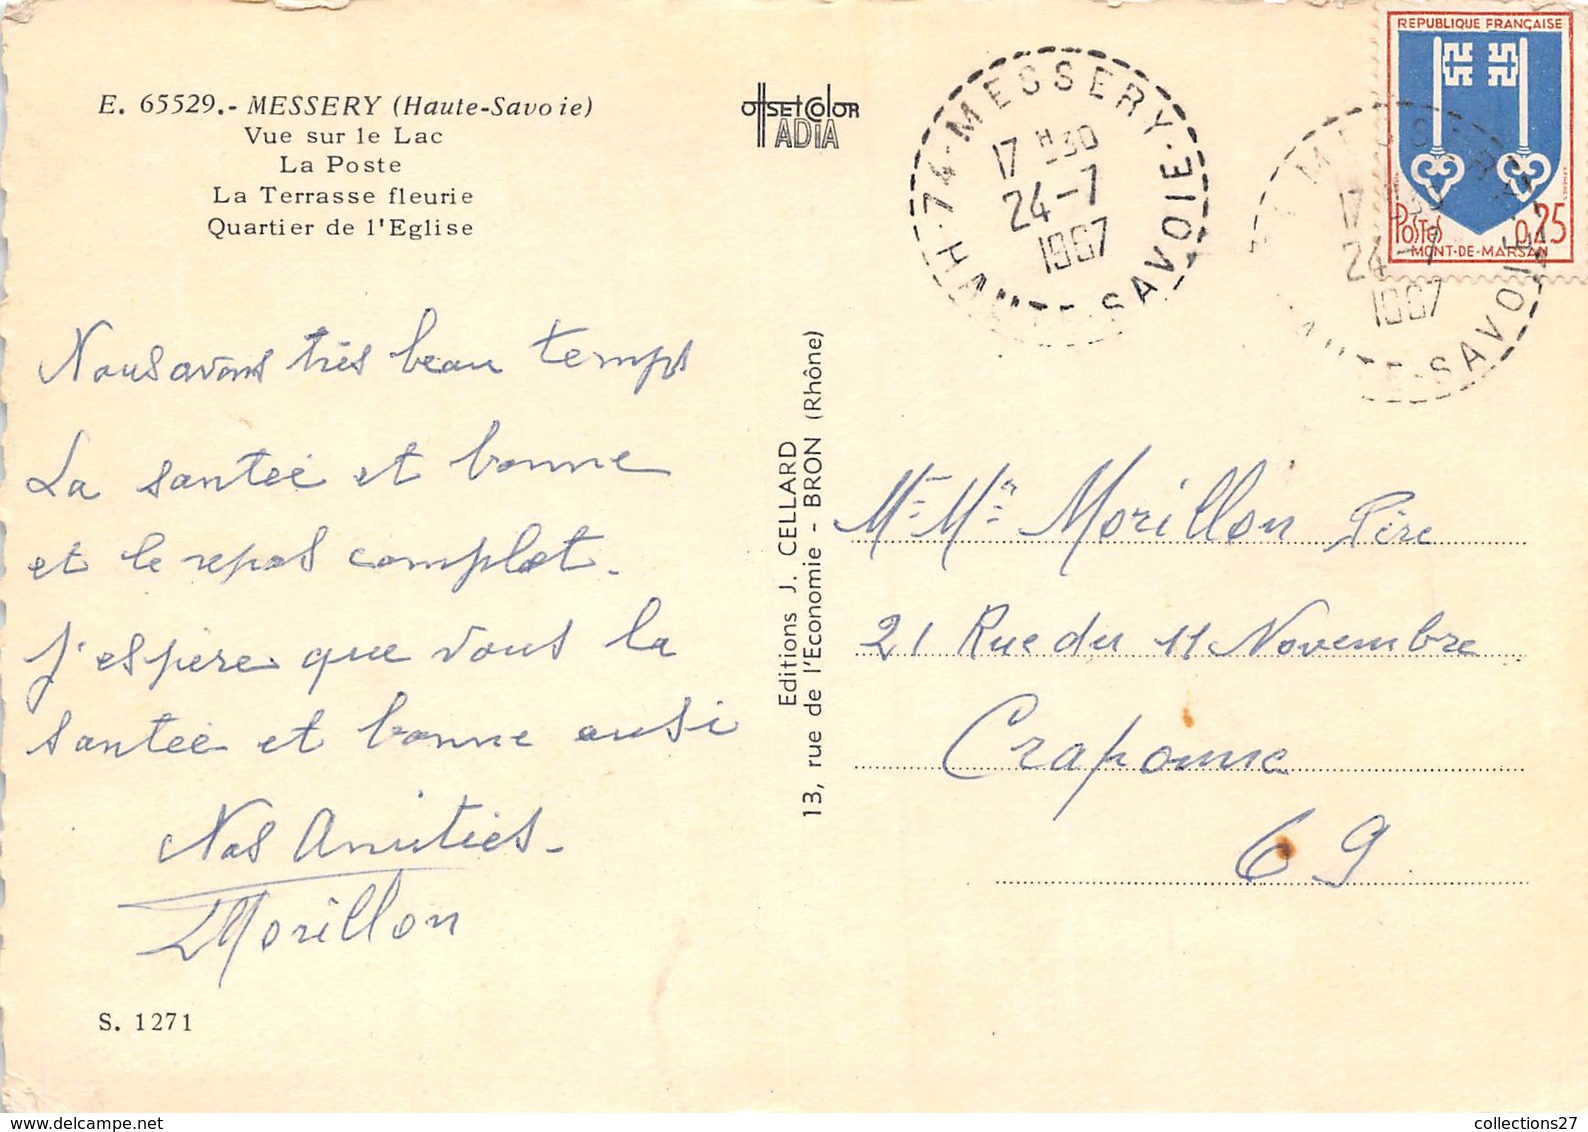 E. 65529.- MESSERY (Haute-Savoie)
Vue sur le Lac
La Poste
La Terrasse fleurie
Quartier de l'Eglise
Nous avons très beau temps
La santée et bonne
et le repos complet.
J'espère que vous la
santée et bonne ausi
Nos Amitiés-
Morillon
S. 1271
OffSEtColOR
ADIA
Editions J. CELLARD
13, rue de l'Economie - BRON (Rhône)
74·MESSERY·
17 H 30
24-7
1967
HAUTE-SAVOIE
REPUBLIQUE FRANÇAISE
POSTES 0,25
MONT-DE-MARSAN
MESSERY
17 H 30
24-7
1967
HAUTE-SAVOIE
Mme Mr Morillon Père
21 Rue du 11 Novembre
Craponne
69
collections27